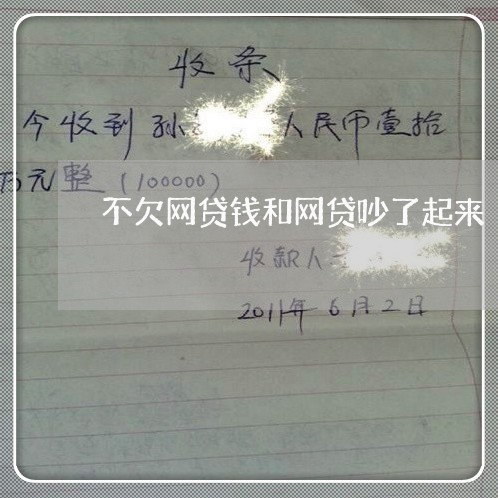 收条
今收到孙 人民币壹拾
万元整(100000)
不欠网贷钱和网贷吵了起来
收款人
2011年6月2日